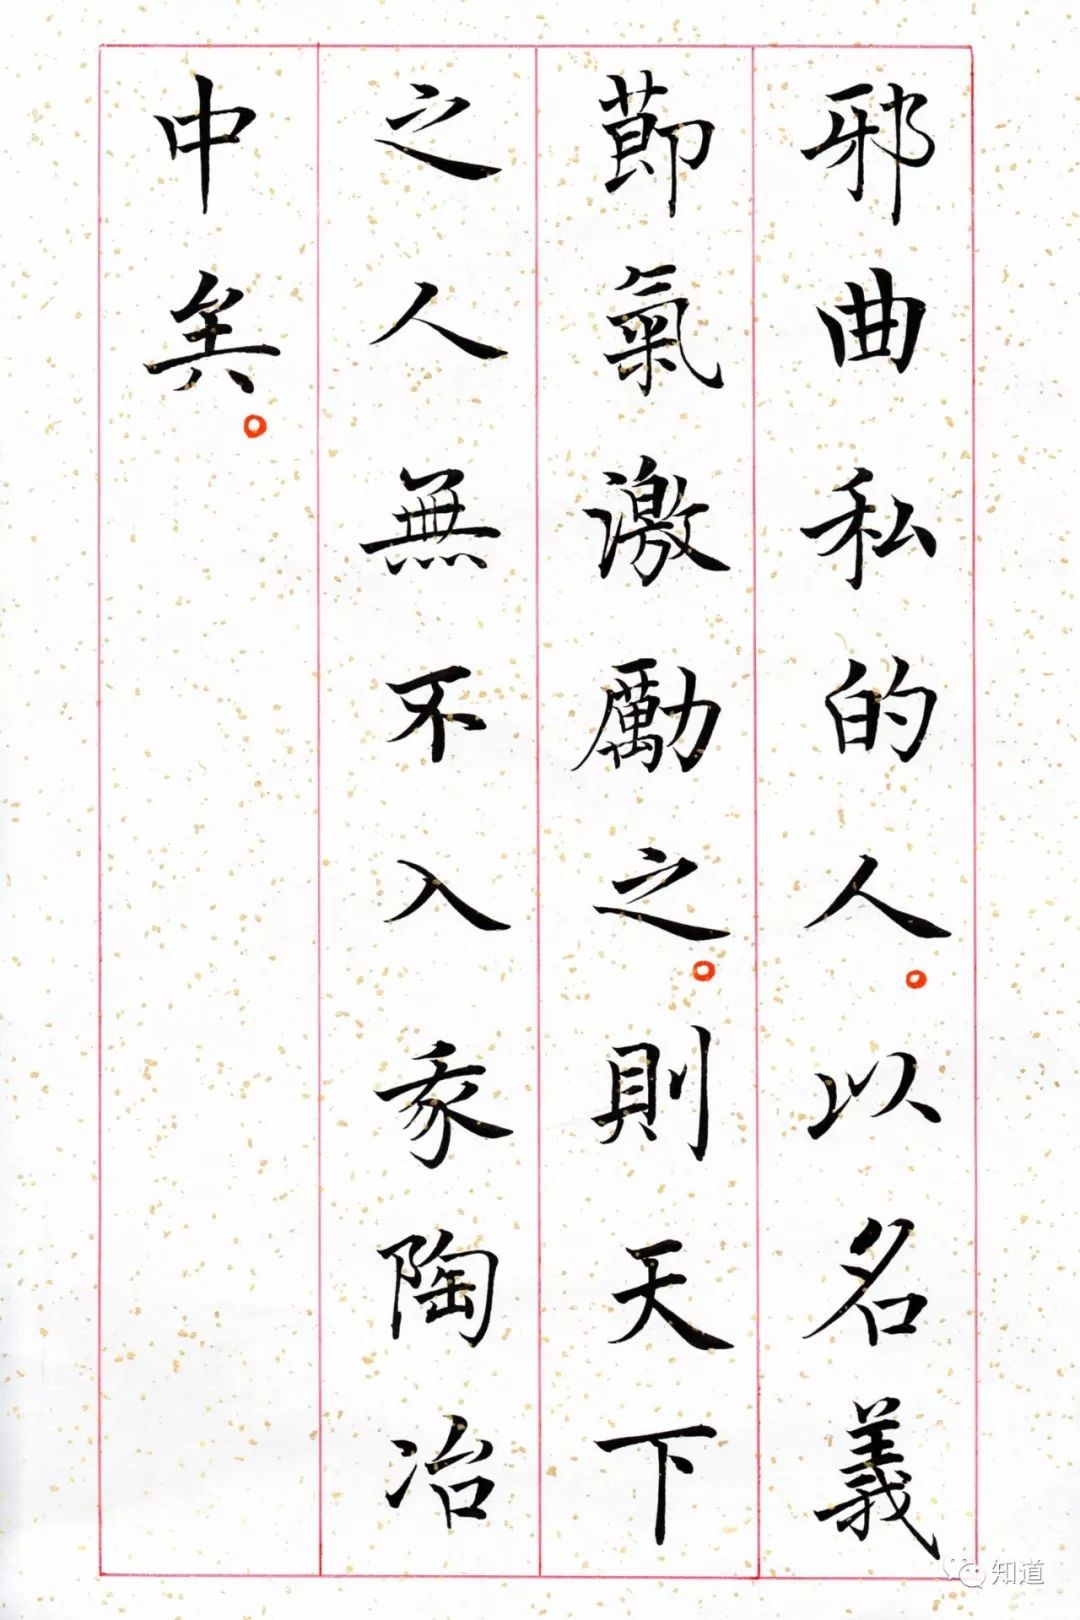 邪曲私的人。以名義
節氣激勵之。則天下
之人無不入我陶冶
中矣。
知道